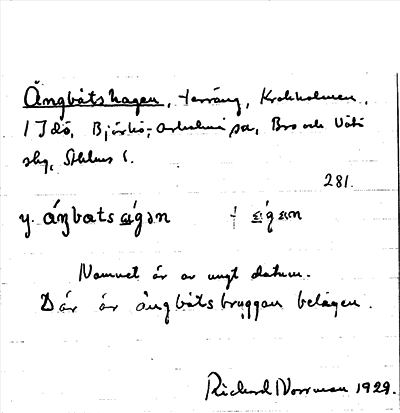 Ångbåtshagen, terräng, Krokholmen,
1 Idö, Björkö-Arholma sn, Bro och Vätö
skg, Sthlms l.
281.
y. áŋbats
Namnet är av ungt datum.
Där är ångbåtsbryggan belägen.
Richard Norrman 1929.